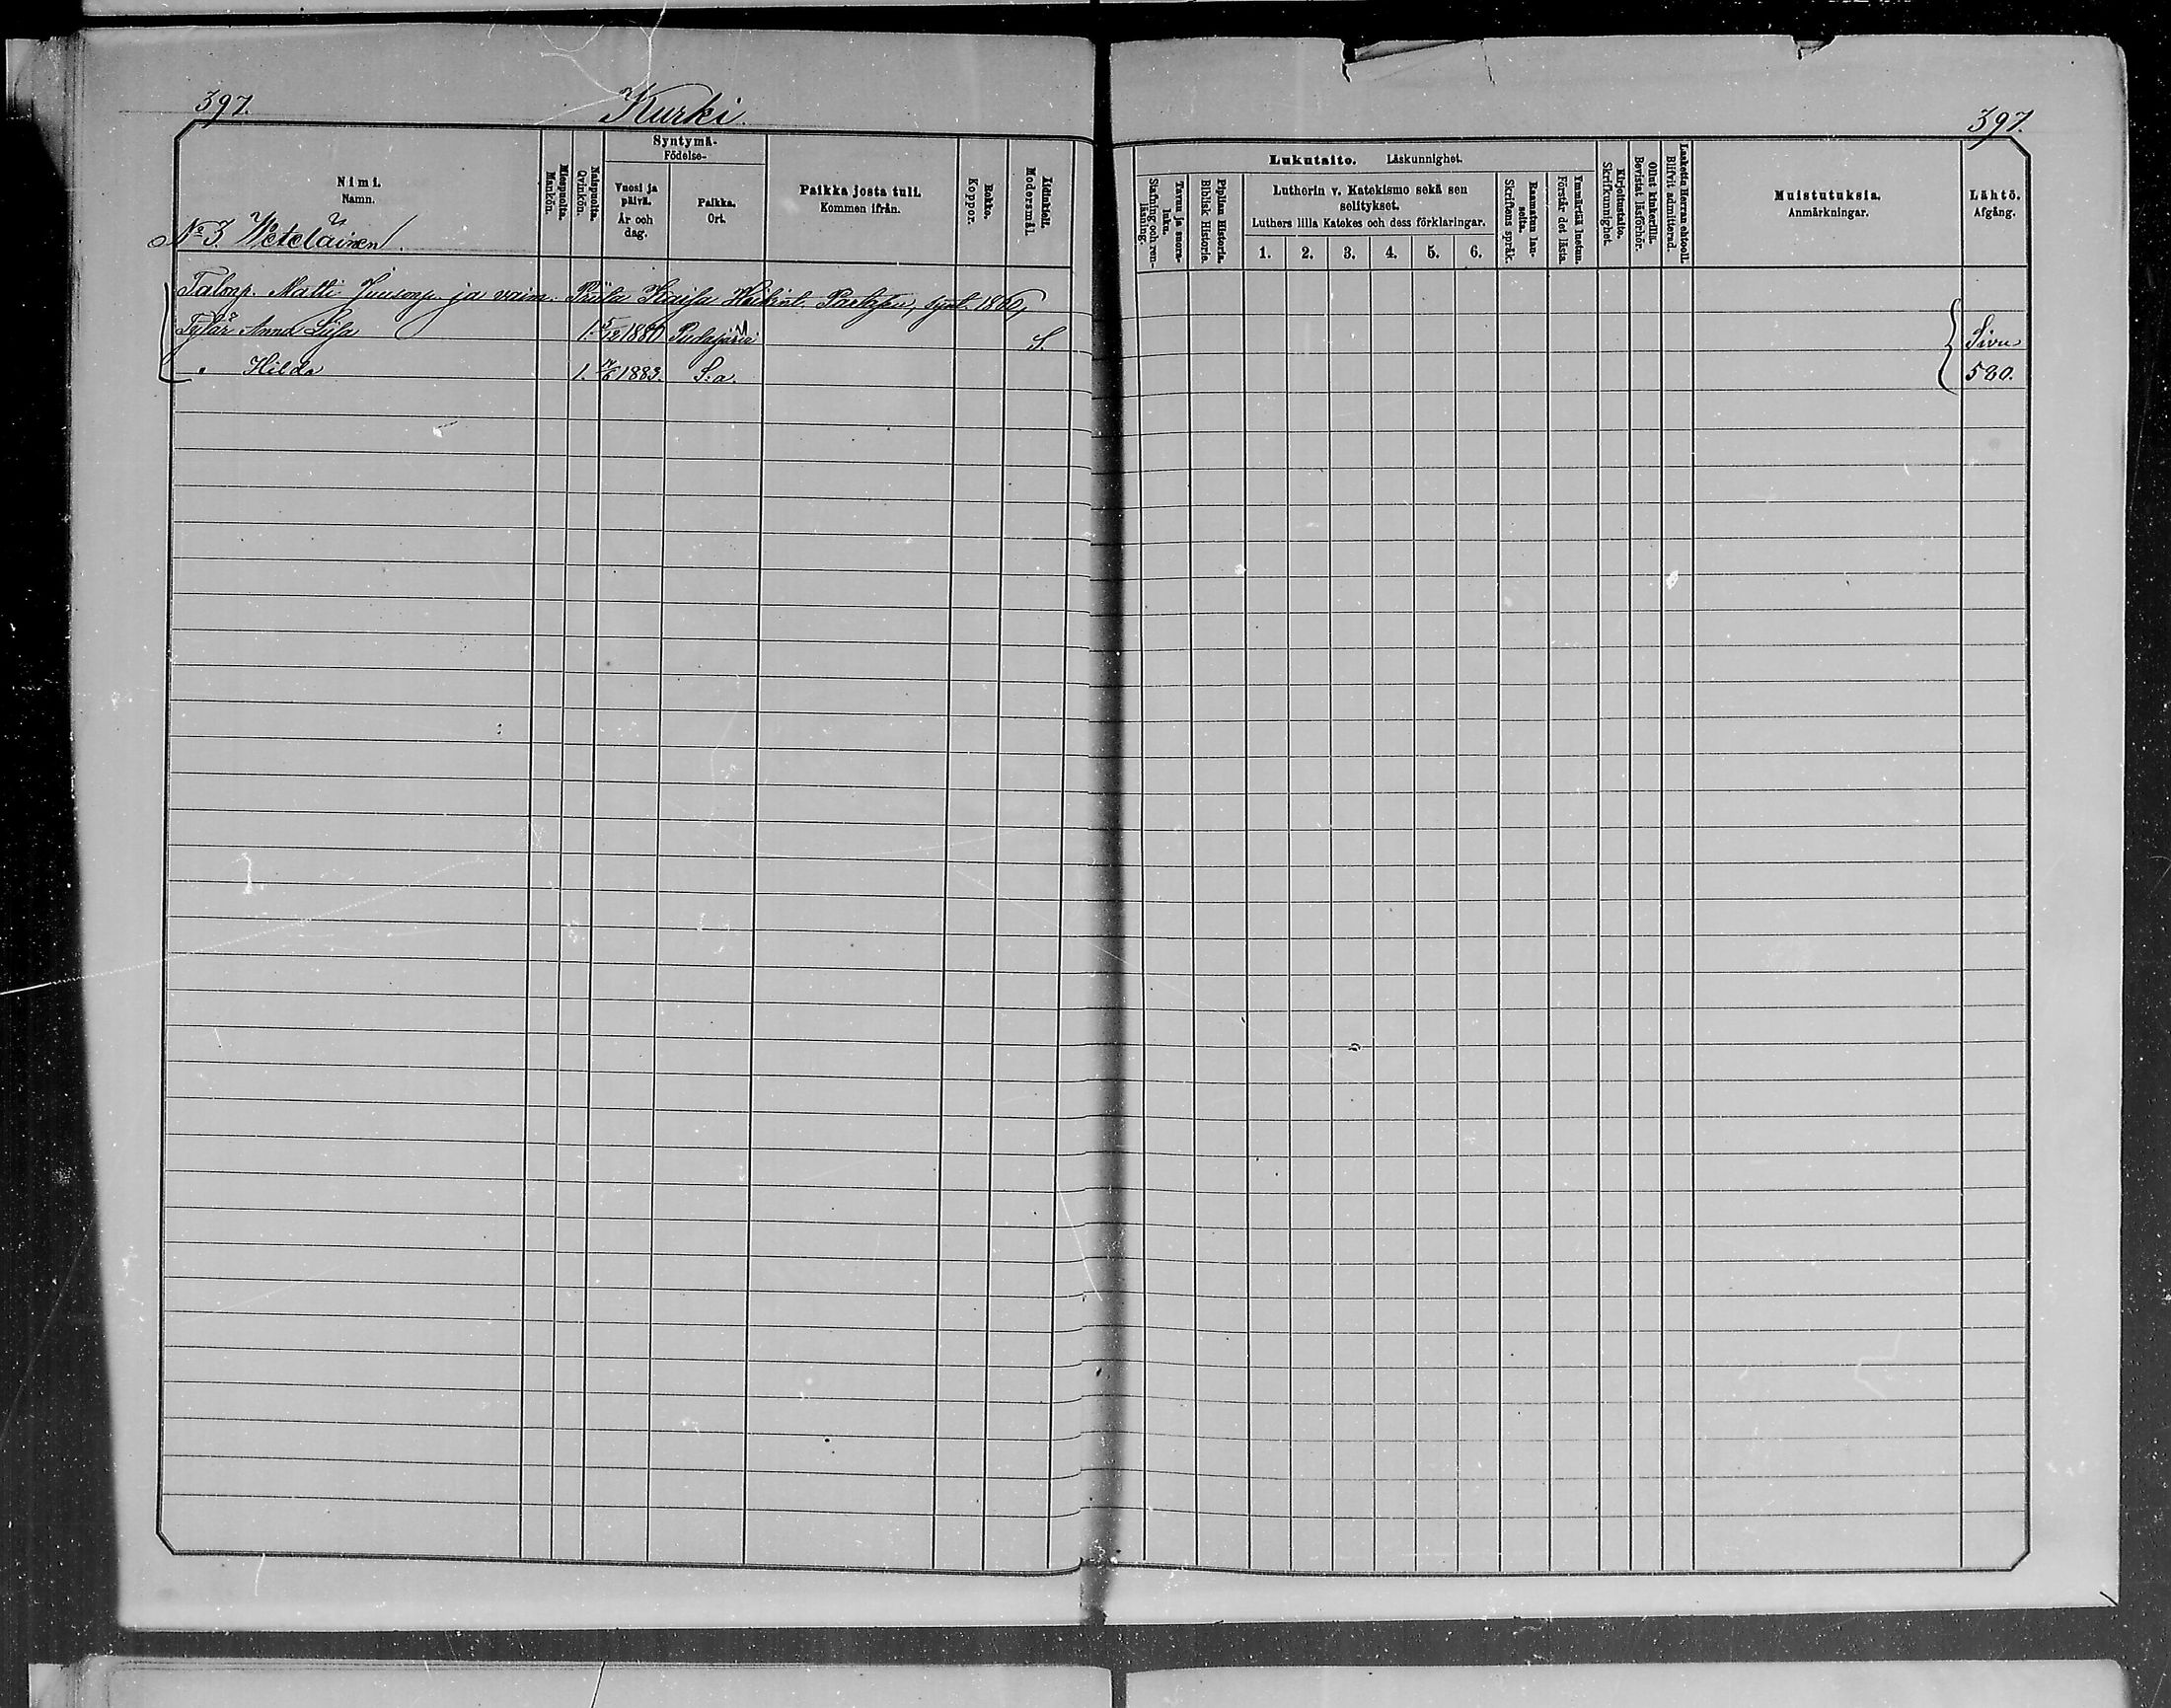 397.
Kurki.
397.
Nimi.
Namn.
Miespuolta.
Mankön.
Naispuolta.
Qvinkön.
Syntymä-
Födelse-
Vuosi ja
päivä.
År och
dag.
Paikka.
Ort.
Paikka josta tuli.
Kommen ifrån.
Rokko.
Koppor.
Äidinkieli.
Modersmål.
Lukutaito. Läskunnighet.
Tavuu ja suora-
luku.
Stafning och ren-
läsning.
Piplian Historia.
Biblisk Historie.
Lutherin v. Katekismo sekä sen
selitykset.
Luthers lilla Katekes och dess förklaringar.
1. 2. 3. 4. 5. 6.
Raamatun lau-
seita.
Skriftens språk.
Ymmärtää luetun.
Förstår det lästa.
Kirjoitustaito.
Skriftkunnighet.
Ollut kinkerillä.
Bevistat läsförhör.
Laskettu Herran ehtool.
Blifvit admitterad.
Muistutuksia.
Anmärkningar.
Lähtö.
Afgång.
No 3. Weteläinen
Talonp. Matti Juusonp. ja vaim. Kaisa Heikint. synt.
Tytär Anna 1. 5/12 1880 Pudasjärvi S. Sivu
" Hilda 1. 7/6 1883. S:a. 580.